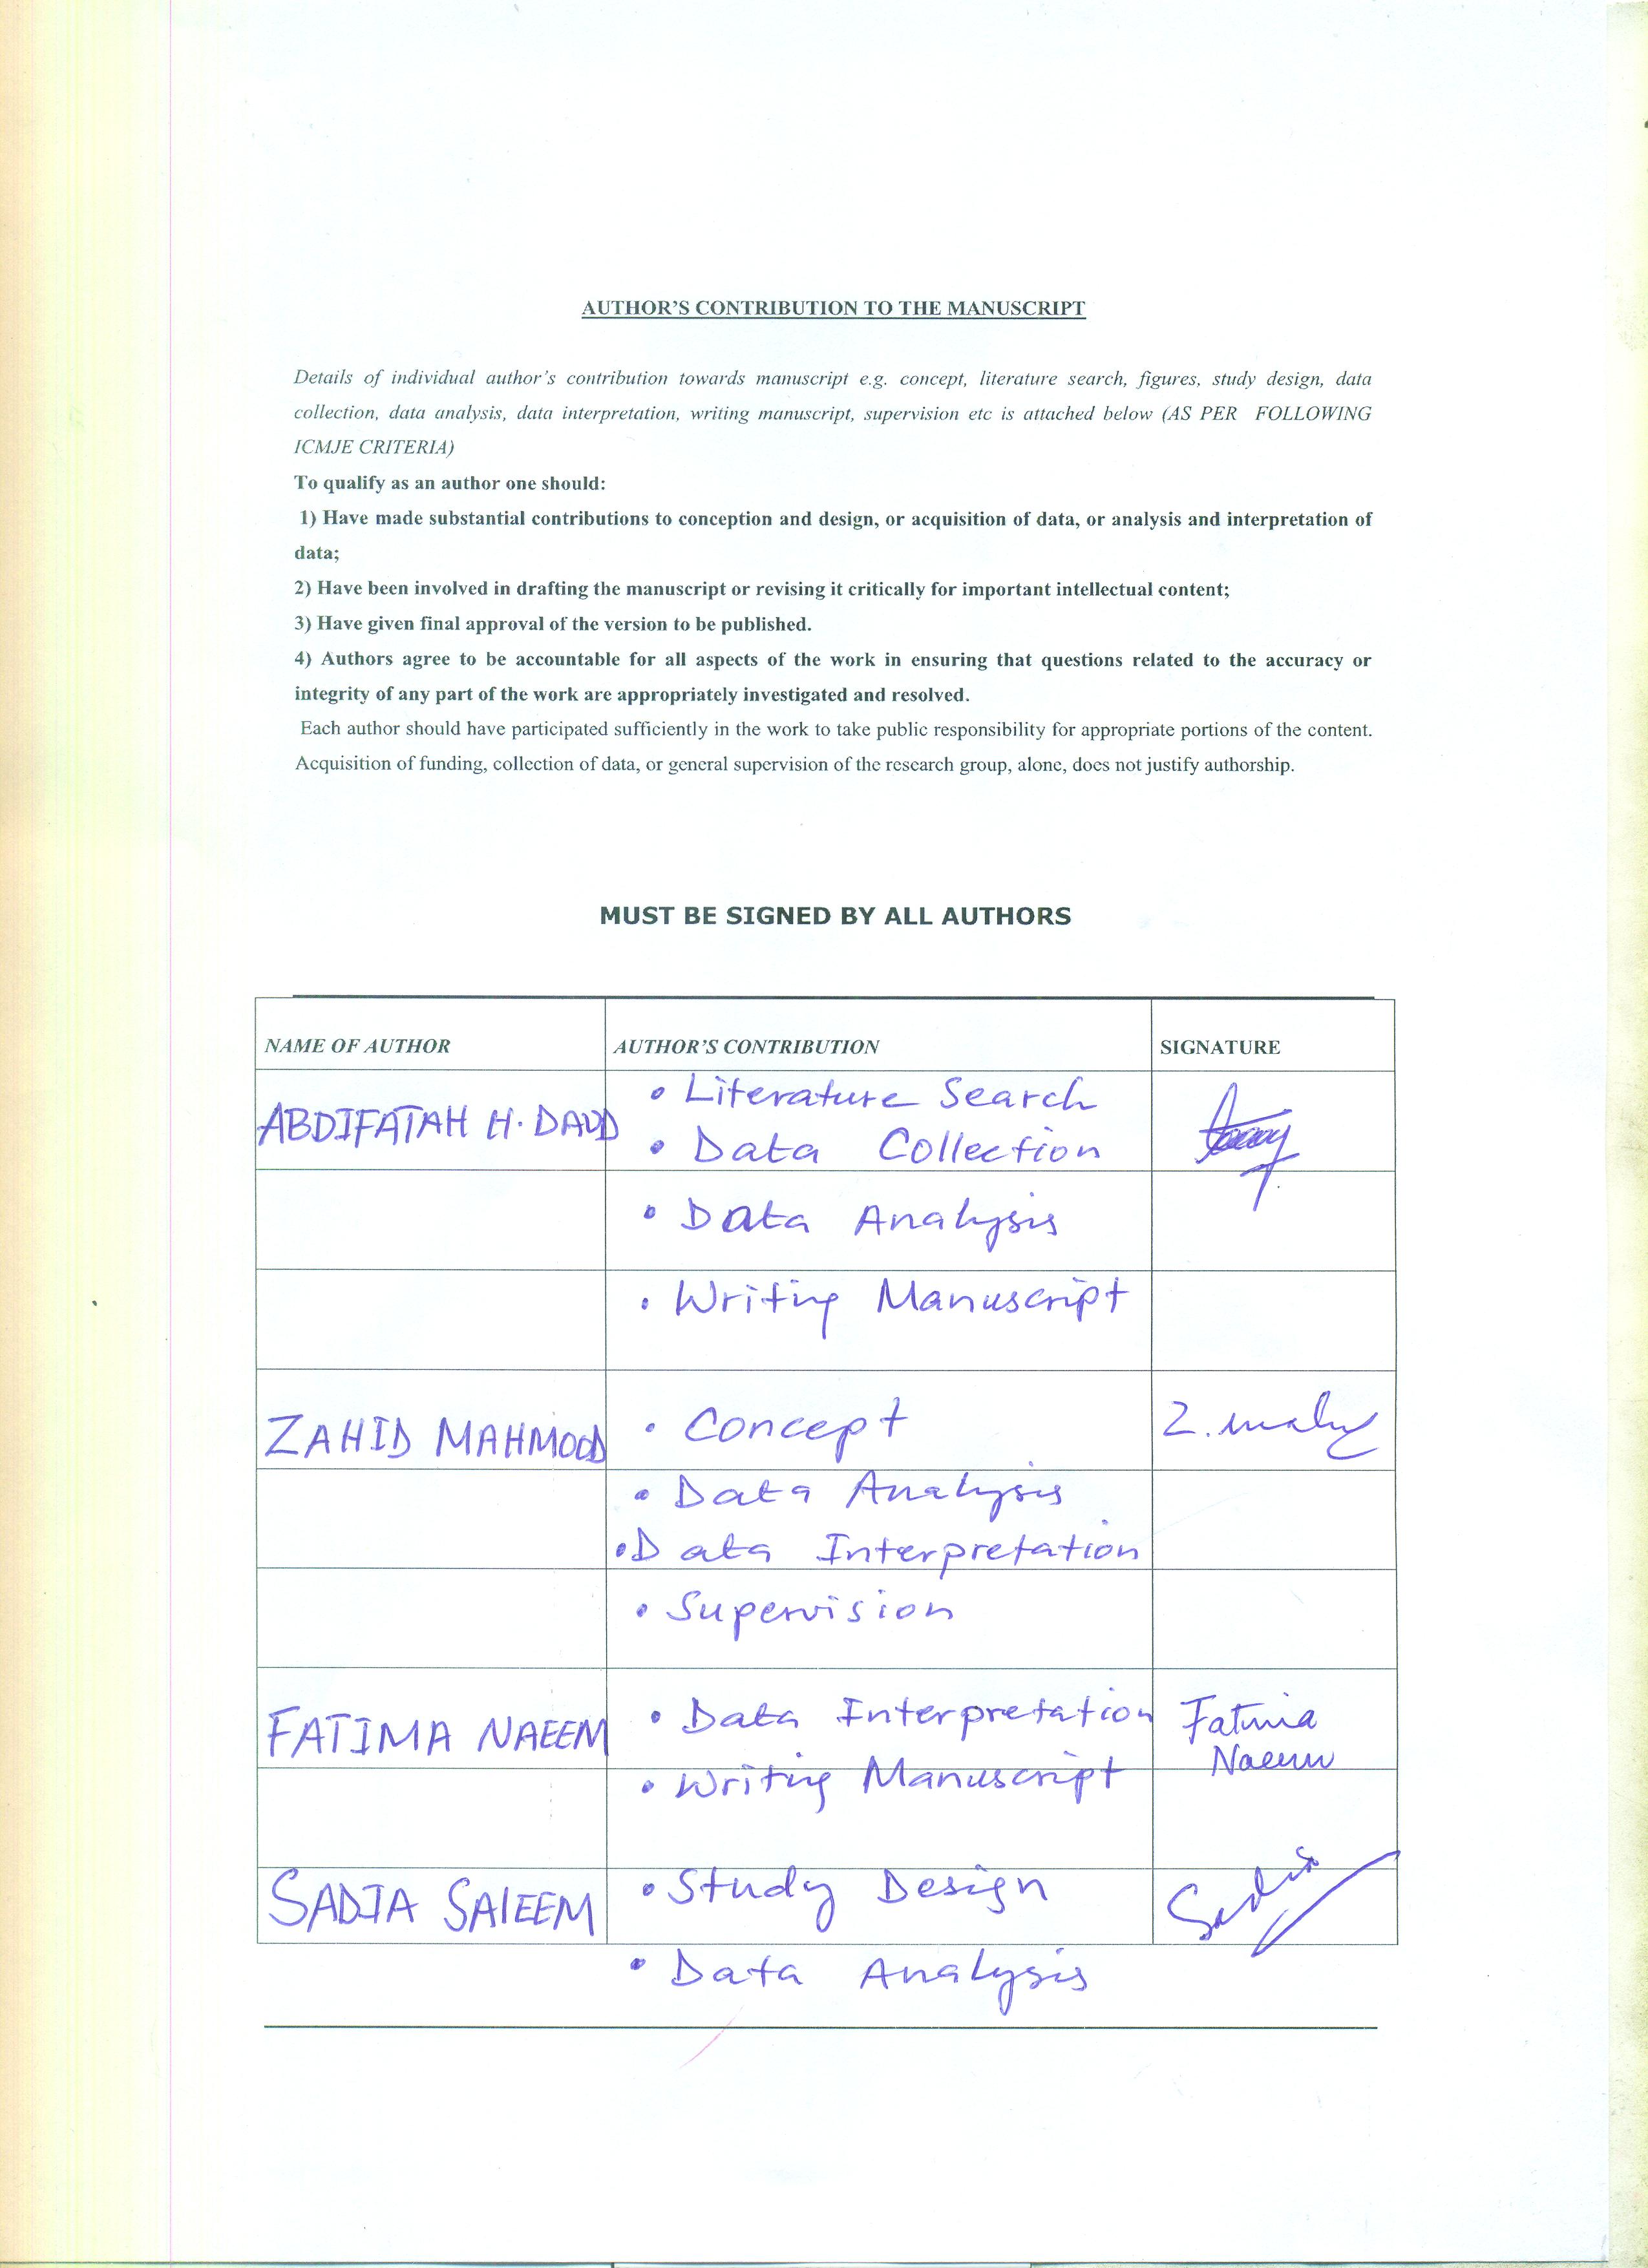 AUTHOR'S CONTRIBUTION TO THE MANUSCRIPT
Details of individual author's contribution towards manuscript e.g. concept, literature search, figures, study design, data
collection, data analysis, data interpretation, writing manuscript, supervision etc is attached below (AS PER FOLLOWING
ICMJE CRITERIA)
To qualify as an author one should:
1) Have made substantial contributions to conception and design, or acquisition of data, or analysis and interpretation of
data;
2) Have been involved in drafting the manuscript or revising it critically for important intellectual content;
3) Have given final approval of the version to be published.
4) Authors agree to be accountable for all aspects of the work in ensuring that questions related to the accuracy or
integrity of any part of the work are appropriately investigated and resolved.
Each author should have participated sufficiently in the work to take public responsibility for appropriate portions of the content.
Acquisition of funding, collection of data, or general supervision of the research group, alone, does not justify authorship.
MUST BE SIGNED BY ALL AUTHORS
NAME OF AUTHOR AUTHOR'S CONTRIBUTION SIGNATURE
ABDIFATAH H. DAUD
• Literature Search
• Data Collection
• Data Analysis
• Writing Manuscript
ZAHID MAHMOOD • Concept
• Data Analysis
• Data Interpretation
• Supervision
FATIMA NAEEM • Data Interpretation Fatima
Naeem
• Writing Manuscript
SADIA SALEEM • Study Design Sadia
• Data Analysis